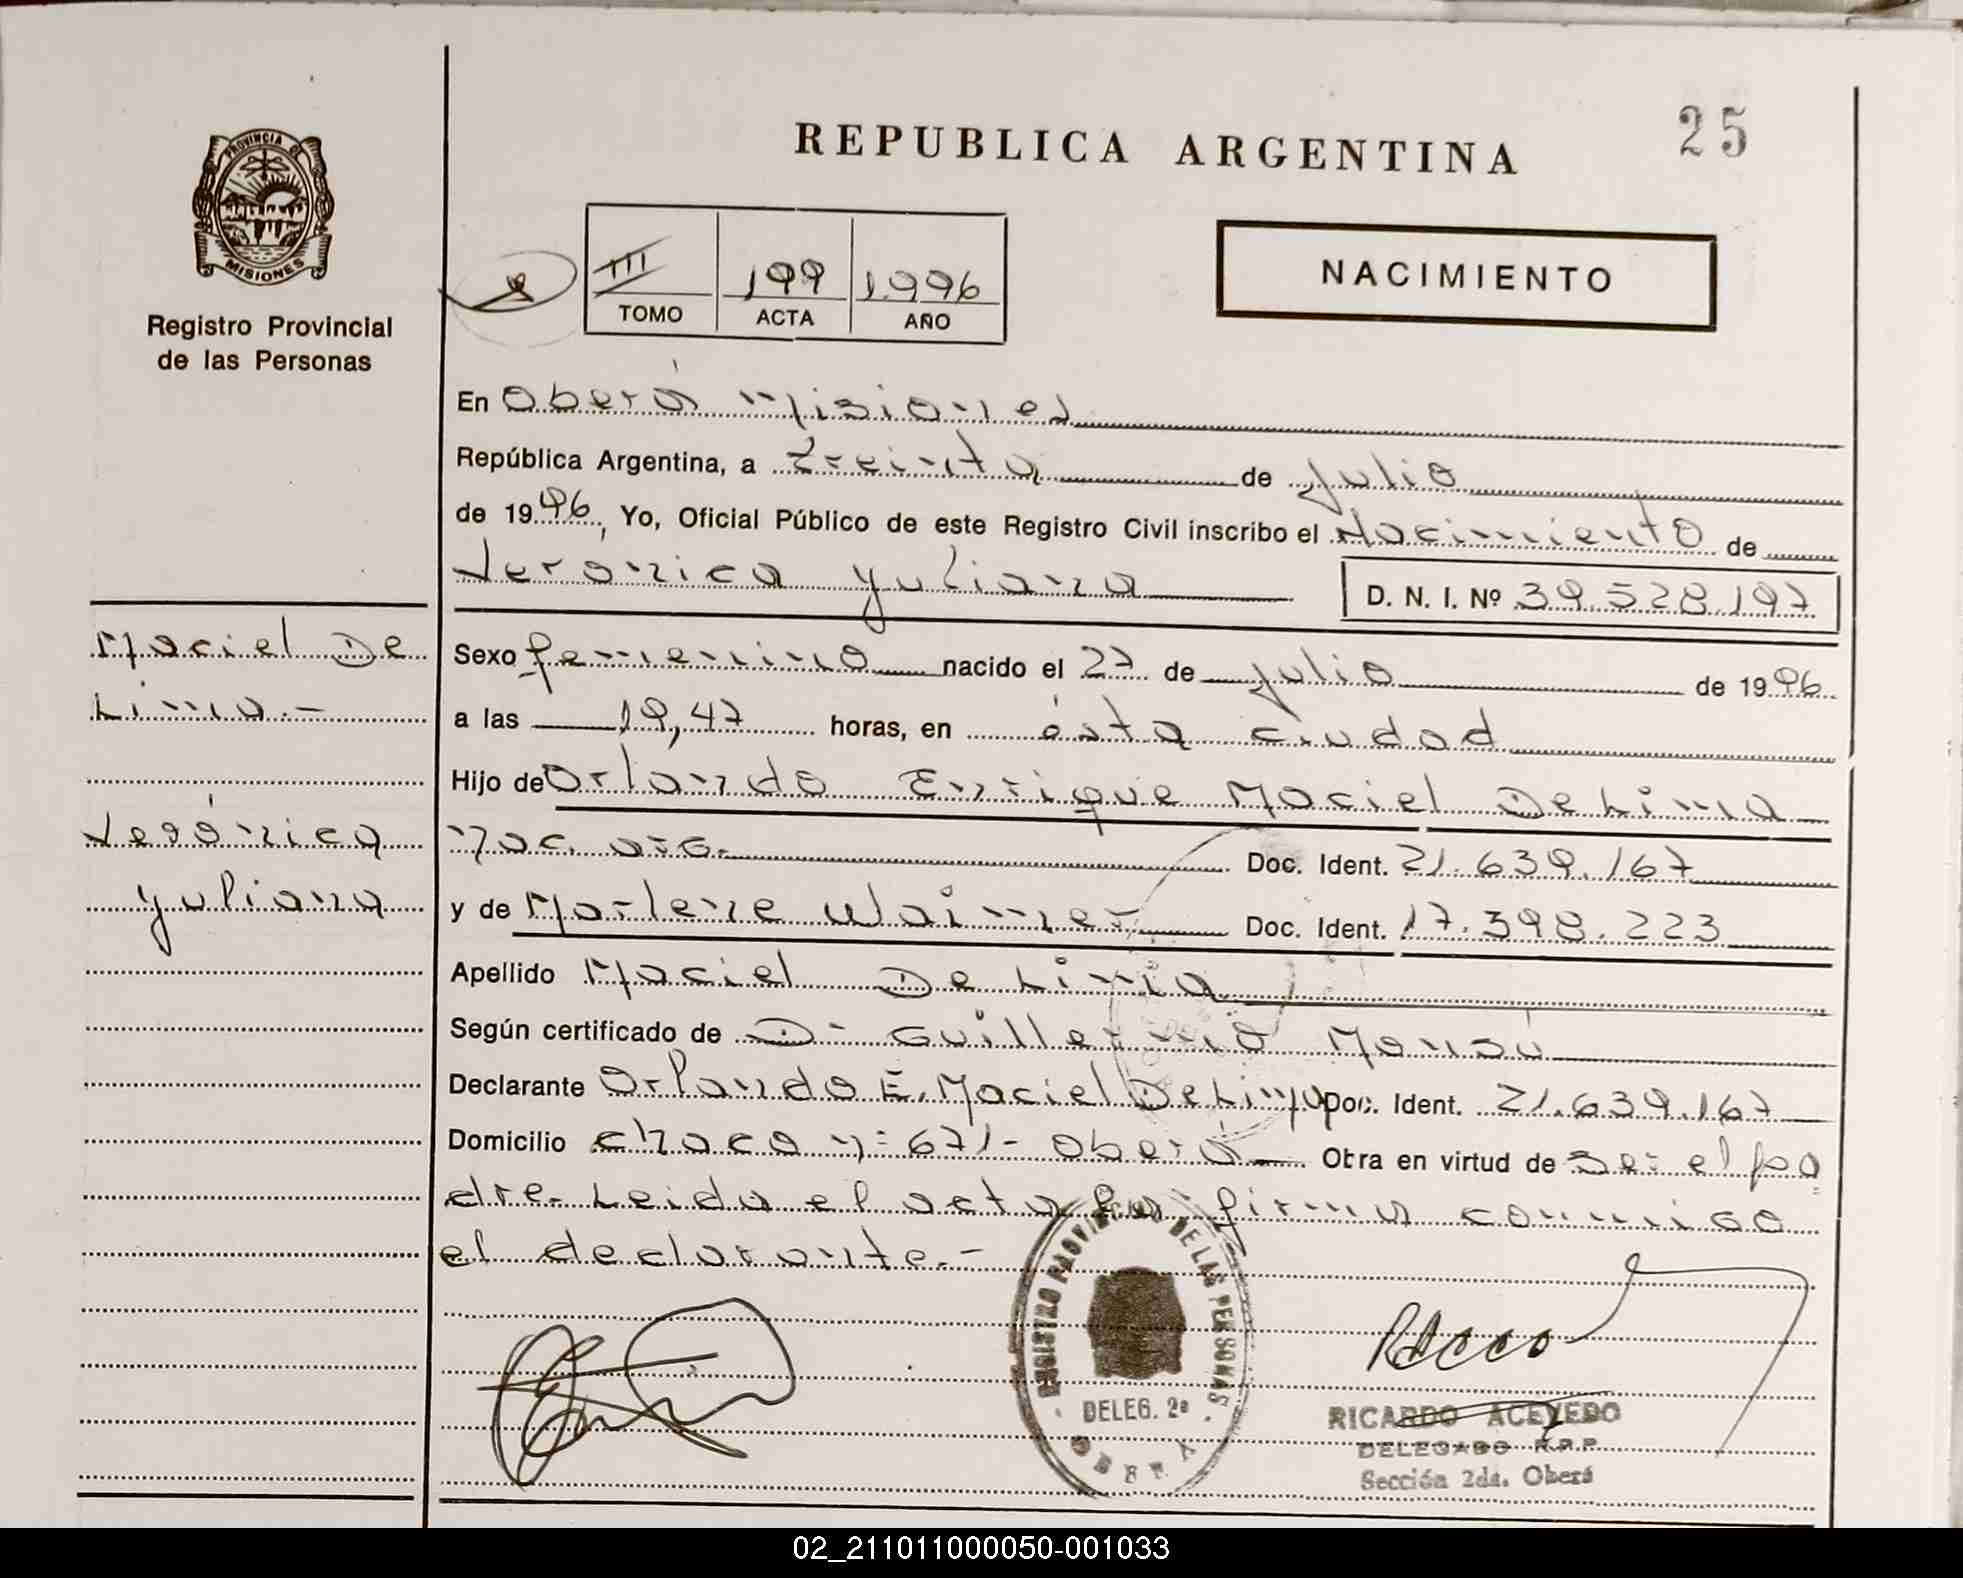 25
REPUBLICA ARGENTINA
PROVINCIA DE
MISIONES
Registro Provincial
de las Personas
III 199 1996
TOMO ACTA AÑO
NACIMIENTO
En Oberá Misiones
República Argentina, a Treinta de Julio
de 1996, Yo, Oficial Público de este Registro Civil inscribo el Nacimiento de
Veronica Yuliana D. N. I. Nº 39.528.197
Maciel De
Lima.-
Verónica
Yuliana
Sexo femenino nacido el 27 de Julio de 1996
a las 19,47 horas, en ésta ciudad
Hijo de Orlando Enrique Maciel De Lima
nac. arg. Doc. Ident. 21.639.167
y de Marlene Waimer Doc. Ident. 17.398.223
Apellido Maciel De Lima
Según certificado de Dr Guillermo Mansú
Declarante Orlando E. Maciel De Lima Doc. Ident. 21.639.167
Domicilio chaco nº 671- Oberá Obra en virtud de Ser el pa
dre. Leida el acta la firma conmigo
el declarante.-
REGISTRO PROVINCIAL DE LAS PERSONAS
DELEG. 2ª
OBERA
RICARDO ACEVEDO
DELEGADO R.P.P.
Sección 2da. Oberá
02_211011000050-001033